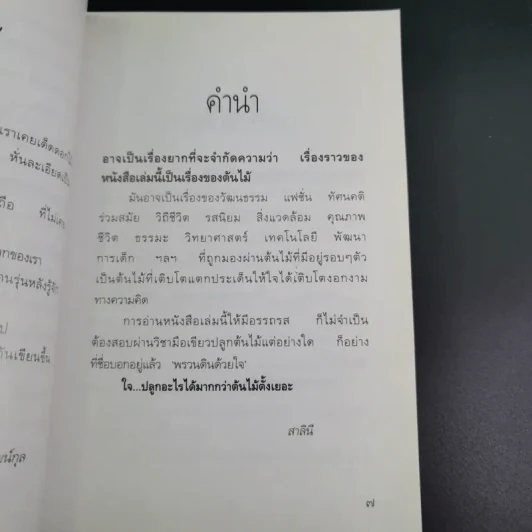 ราเคยเด็ดดอกไม้
หั่นละเอียด
ถือ ที่ไม่เคย
กของเรา
านรุ่นหลังรู้จัก
ป
กันเขียนขึ้น
คำนำ
อาจเป็นเรื่องยากที่จะจำกัดความว่า เรื่องราวของ
หนังสือเล่มนี้เป็นเรื่องของต้นไม้
มันอาจเป็นเรื่องของวัฒนธรรม แฟชั่น ทัศนคติ
ร่วมสมัย วิถีชีวิต รสนิยม สิ่งแวดล้อม คุณภาพ
ชีวิต ธรรมะ วิทยาศาสตร์ เทคโนโลยี พัฒนา
การเด็ก ฯลฯ ที่ถูกมองผ่านต้นไม้ที่มีอยู่รอบๆตัว
เป็นต้นไม้ที่เติบโตแตกประเด็นให้ใจได้เติบโตงอกงาม
ทางความคิด
การอ่านหนังสือเล่มนี้ให้มีอรรถรส ก็ไม่จำเป็น
ต้องสอบผ่านวิชามือเขียวปลูกต้นไม้แต่อย่างใด ก็อย่าง
ที่ชื่อบอกอยู่แล้ว 'พรวนดินด้วยใจ'
ใจ...ปลูกอะไรได้มากกว่าต้นไม้ตั้งเยอะ
สาลินี
๗